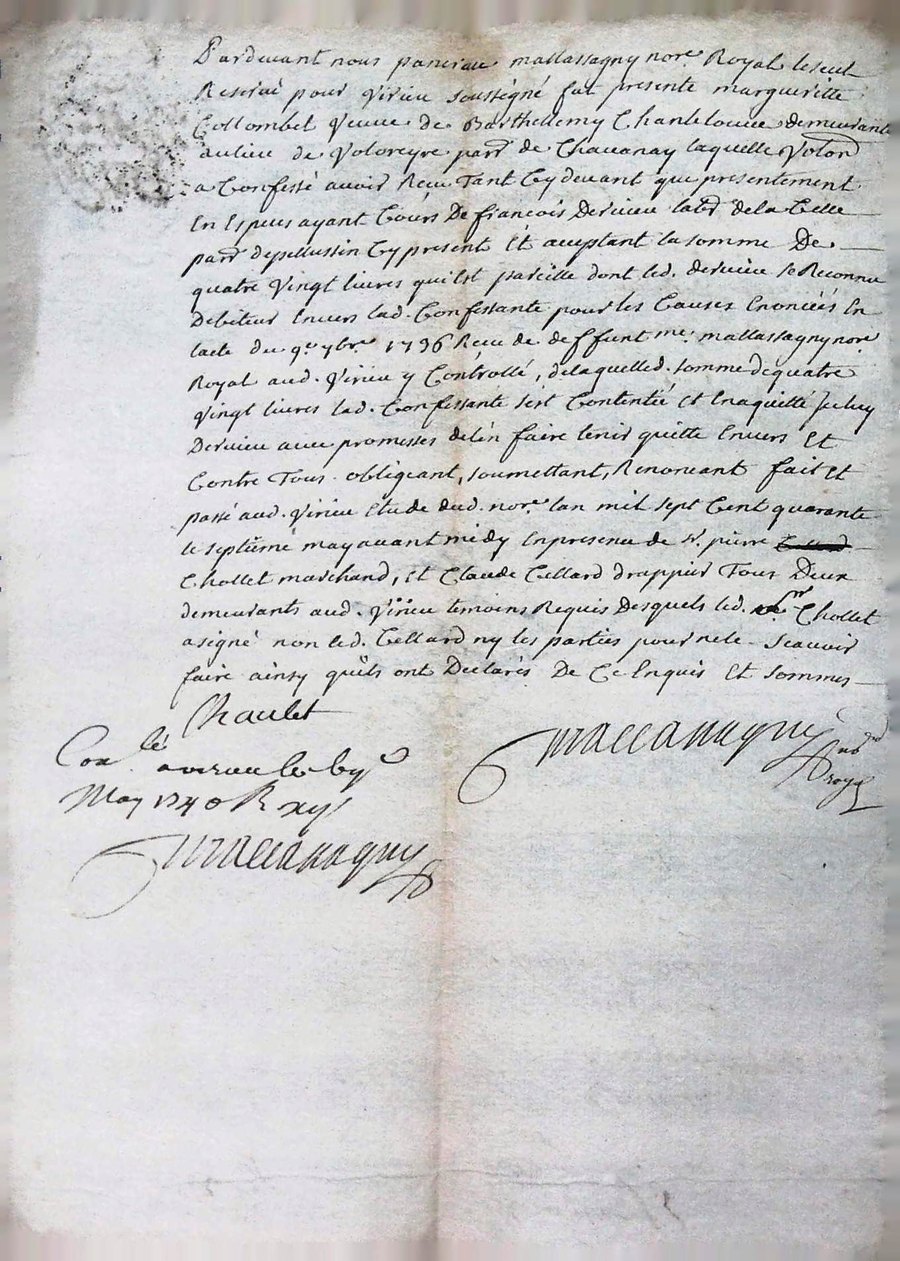 Pardevant nous pancrace mallassagny nore Royal le seul
Reservé pour Virieu soussigné fut presente margueritte
Collombet veuve de Barthellemy Chantelouve demeurante
au lieu de Voloreyre parr de Chavanay laquelle Volont
a Confessé avoir Receu Tant Cy devant que presentement
En Especes ayant Cours De francois Dervieu labr de la Celle
parr de pellussin Cy present Et aceptant la somme De
quatre Vingt livres quil est pareille dont led. dervieu se Reconnu
Debiteur Envers lad. Confessante pour les Causes Enoncées En
lacte du 9e 7bre 1736 Receu de deffunt me. mallassagny nore
Royal aud. Virieu y Controllé, de laquelle d. somme de quatre
Vingt livres lad. Confessante sest Contentée et En aquitté Iceluy
Dervieu avec promesses de len faire tenir quitte Envers Et
Contre Tous. obligeant, soumettant, Renoncant fait Et
passé aud. Virieu Etude dud. nore lan mil sept Cent quarante
le septiême may avant midy En presence de sr. pierre
Chollet marchand, et Claude Cellard drappier Tous Deux
demeurants aud. Virieu temoins Requis Desquels led. sr Chollet
a signé non led. Cellard ny les parties pour ne le Scavoir
faire ainsy quils ont Declarés De Ce Enquis Et sommes
Chaulet
Conlé a virieu le
May 1740 R xijs
Mallassagny
Mallassagny
royal